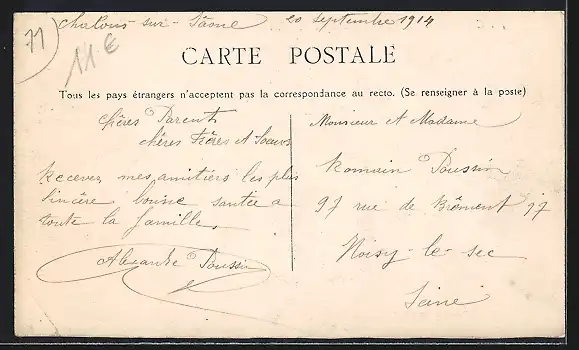 71
11 €
Chalons-sur-Sâone 20 Septembre 1914
CARTE POSTALE
Tous les pays étrangers n'acceptent pas la correspondance au recto. (Se renseigner à la poste)
Chères Parents
chères Frères et Soeurs
Recevez mes amitiers les plus
Sincère bonne santée a
toute la famille,
Alexandre Poussin
Monsieur et Madame
Romain Poussin
97 rue de Brément 97
Noisy-le-sec
Seine